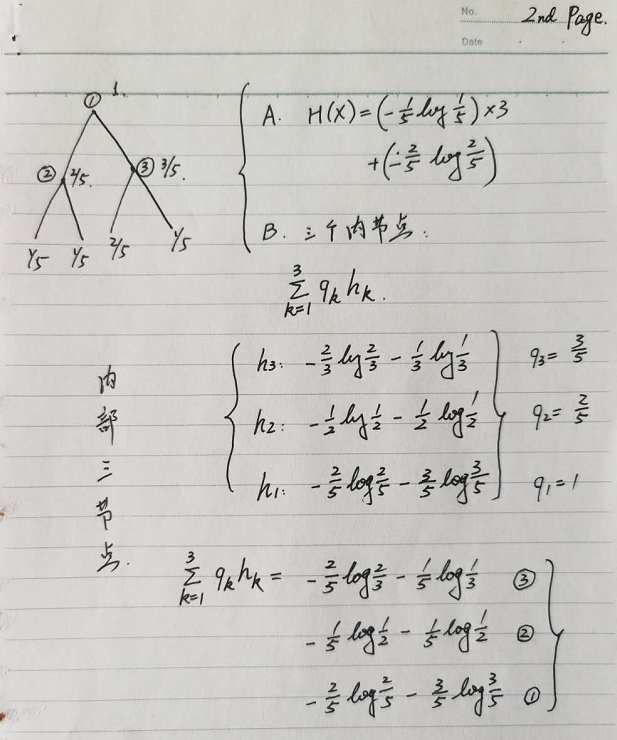 No. 2nd Page.
Date
① 1.
② 2/5. ③ 3/5.
1/5 1/5 2/5 1/5
A. H(X)=(-1/5 log 1/5)×3
+(-2/5 log 2/5)
B. 三个内节点:
3∑k=1 qk hk.
内部三节点.
h3: -2/3 log 2/3 - 1/3 log 1/3 q3= 3/5
h2: -1/2 log 1/2 - 1/2 log 1/2 q2= 2/5
h1: -2/5 log 2/5 - 3/5 log 3/5 q1=1
3∑k=1 qk hk = -2/5 log 2/3 - 1/5 log 1/3 ③
-1/5 log 1/2 - 1/5 log 1/2 ②
-2/5 log 2/5 - 3/5 log 3/5 ①